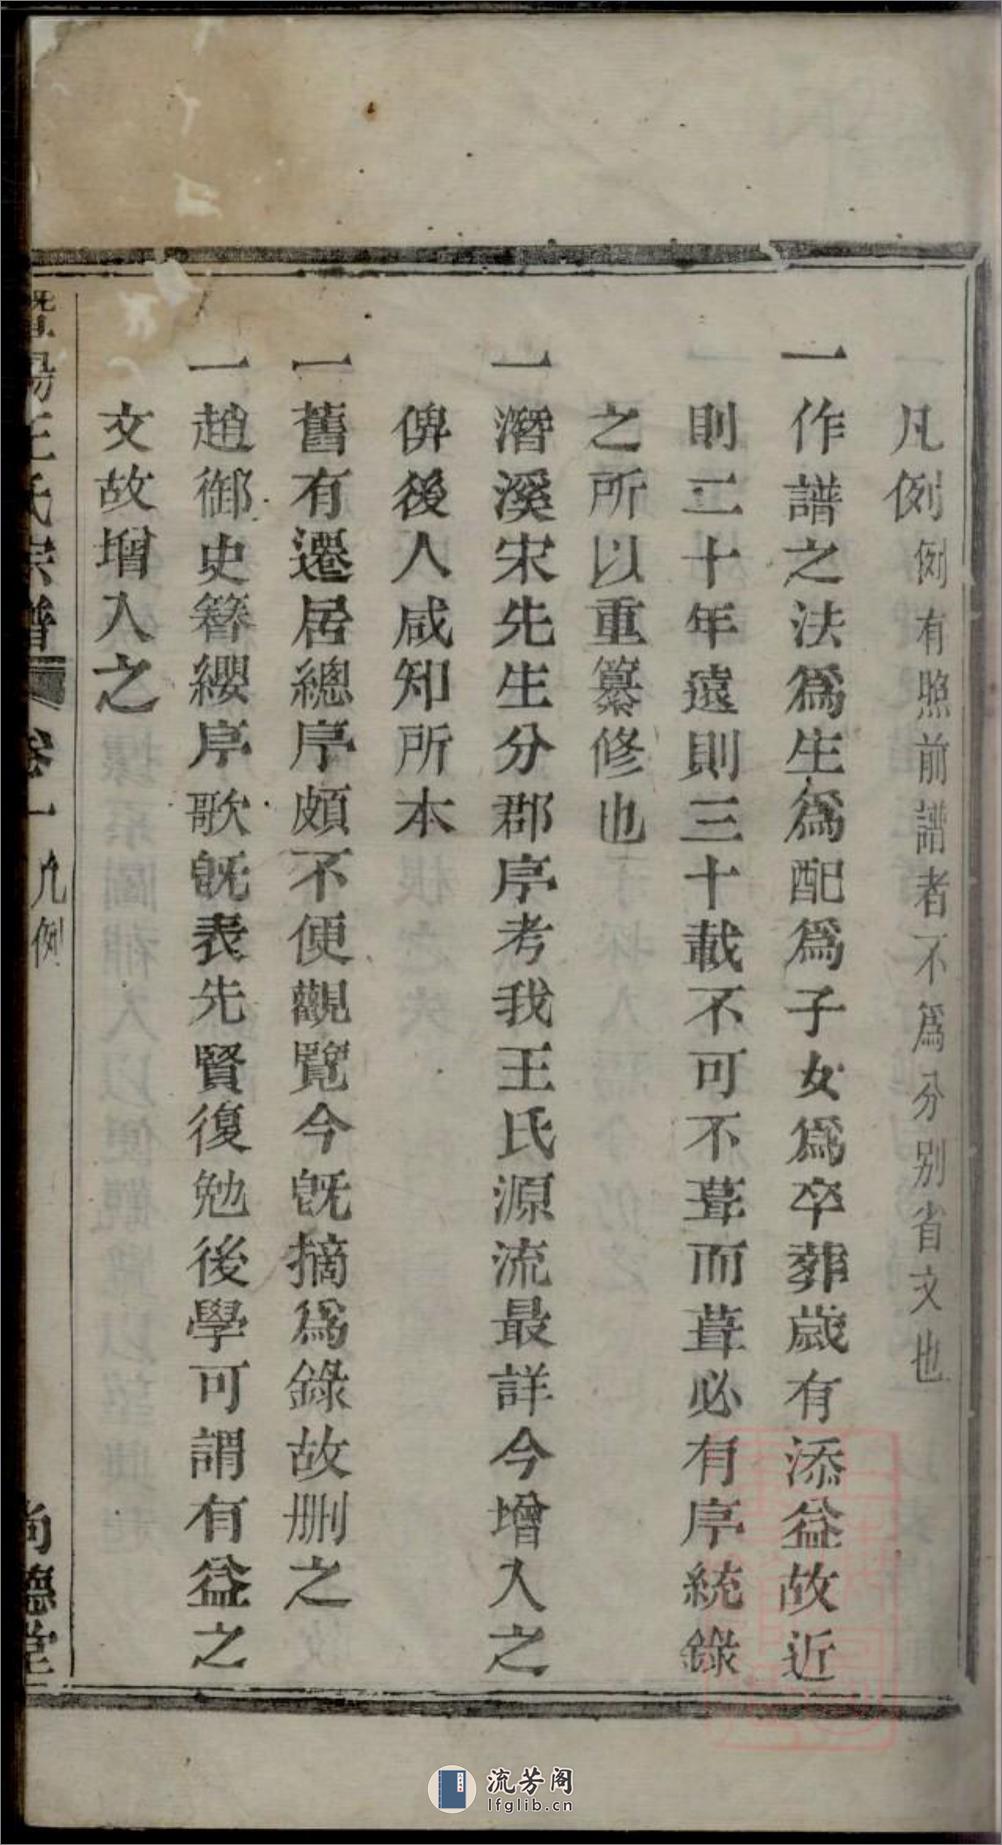 凡例 例有照前譜者不為分別省文也
一作譜之法為生為配為子女為卒葬歲有添益故近
則二十年遠則三十載不可不葺而葺必有序統錄
之所以重纂修也
一潛溪宋先生分郡序考我王氏源流最詳今增入之
俾後人咸知所本
一舊有遷居總序頗不便觀覽今既摘為錄故刪之
一趙御史簪纓序歌既表先賢復勉後學可謂有益之
文故增入之
暨陽王氏宗譜 卷一 凡例 尚德堂
流芳阁
lfglib.cn